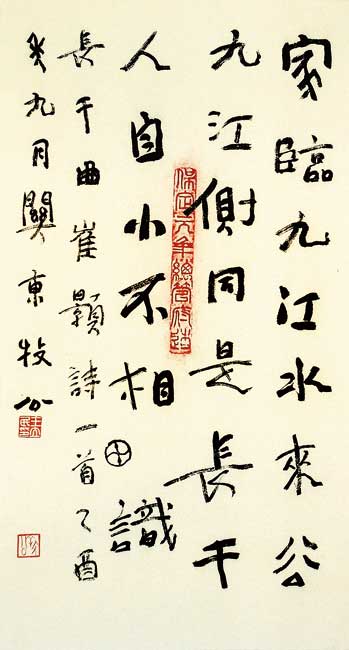 家臨九江水來去
九江側同是長干
人自小不相識
長干曲崔顥詩一首乙酉
九月關東牧公